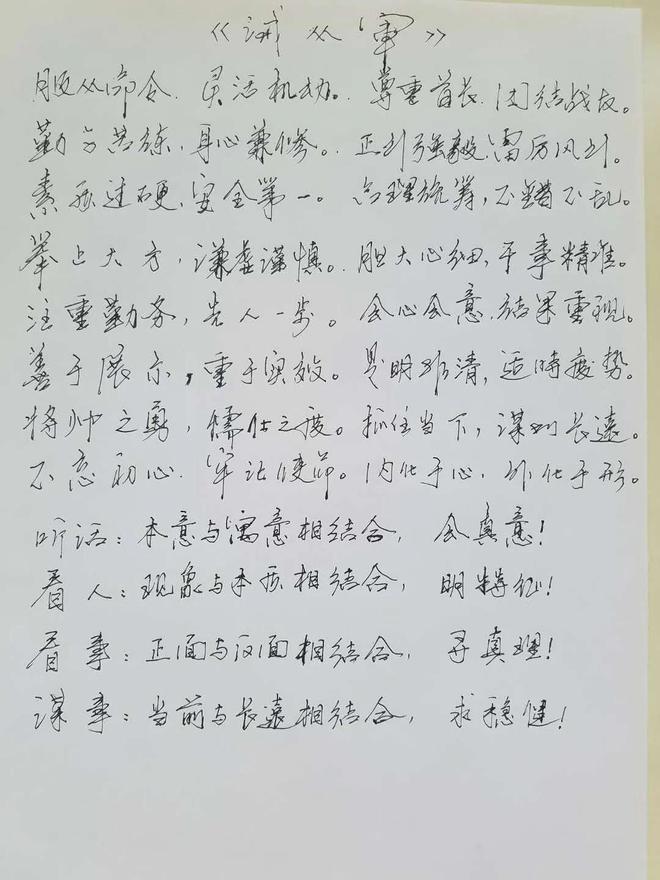 《诫从军》
服从命令.灵活机动。尊重首长.团结战友。
勤学苦练,身心兼修。正到强毅.雷厉风行。
素质过硬,安全第一。合理统筹,不错不乱。
举止大方,谦虚谨慎。胆大心细,干事精准。
注重勤务,先人一步。会心会意,结果重现。
善于展示,重于实效。是明非清,适時度势。
将帅之勇,儒仕之度。抓住当下,谋划长遠。
不忘初心.牢记使命。内化于心,外化于形。
听话:本意与寓意相结合,会真意!
看人:现象与本质相结合,明特征!
看事:正面与反面相结合,寻真理!
谋事:当前与长遠相结合,求稳健!